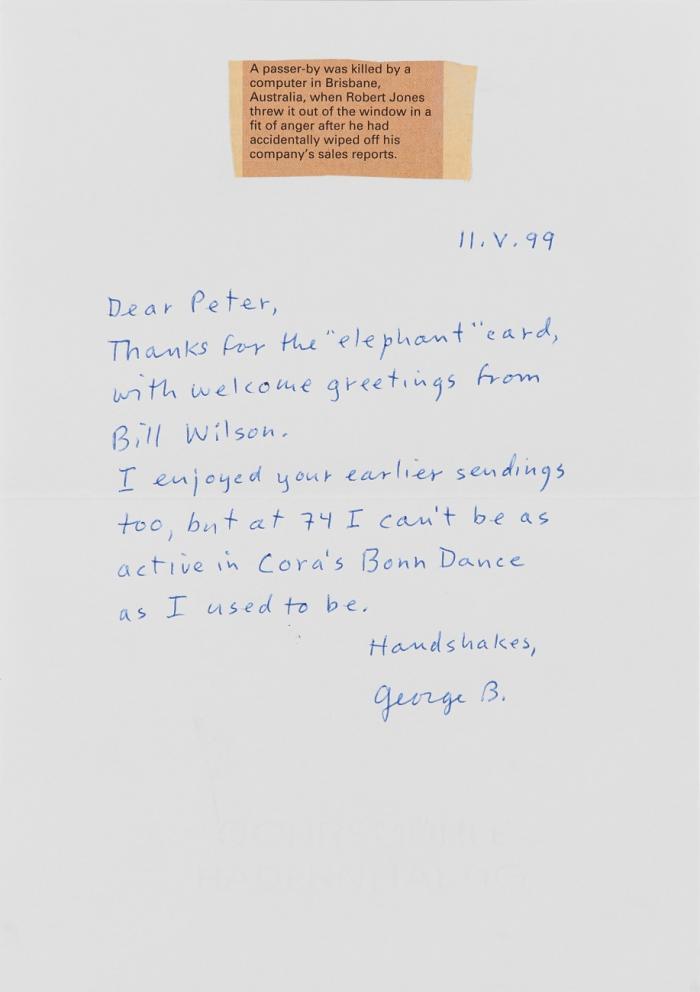 A passer-by was killed by a
computer in Brisbane,
Australia, when Robert Jones
threw it out of the window in a
fit of anger after he had
accidentally wiped off his
company's sales reports.
11. V. 99
Dear Peter,
Thanks for the "elephant" card,
with welcome greetings from
Bill Wilson.
I enjoyed your earlier sendings
too, but at 74 I can't be as
active in Cora's Bonn Dance
as I used to be.
Handshakes,
George B.